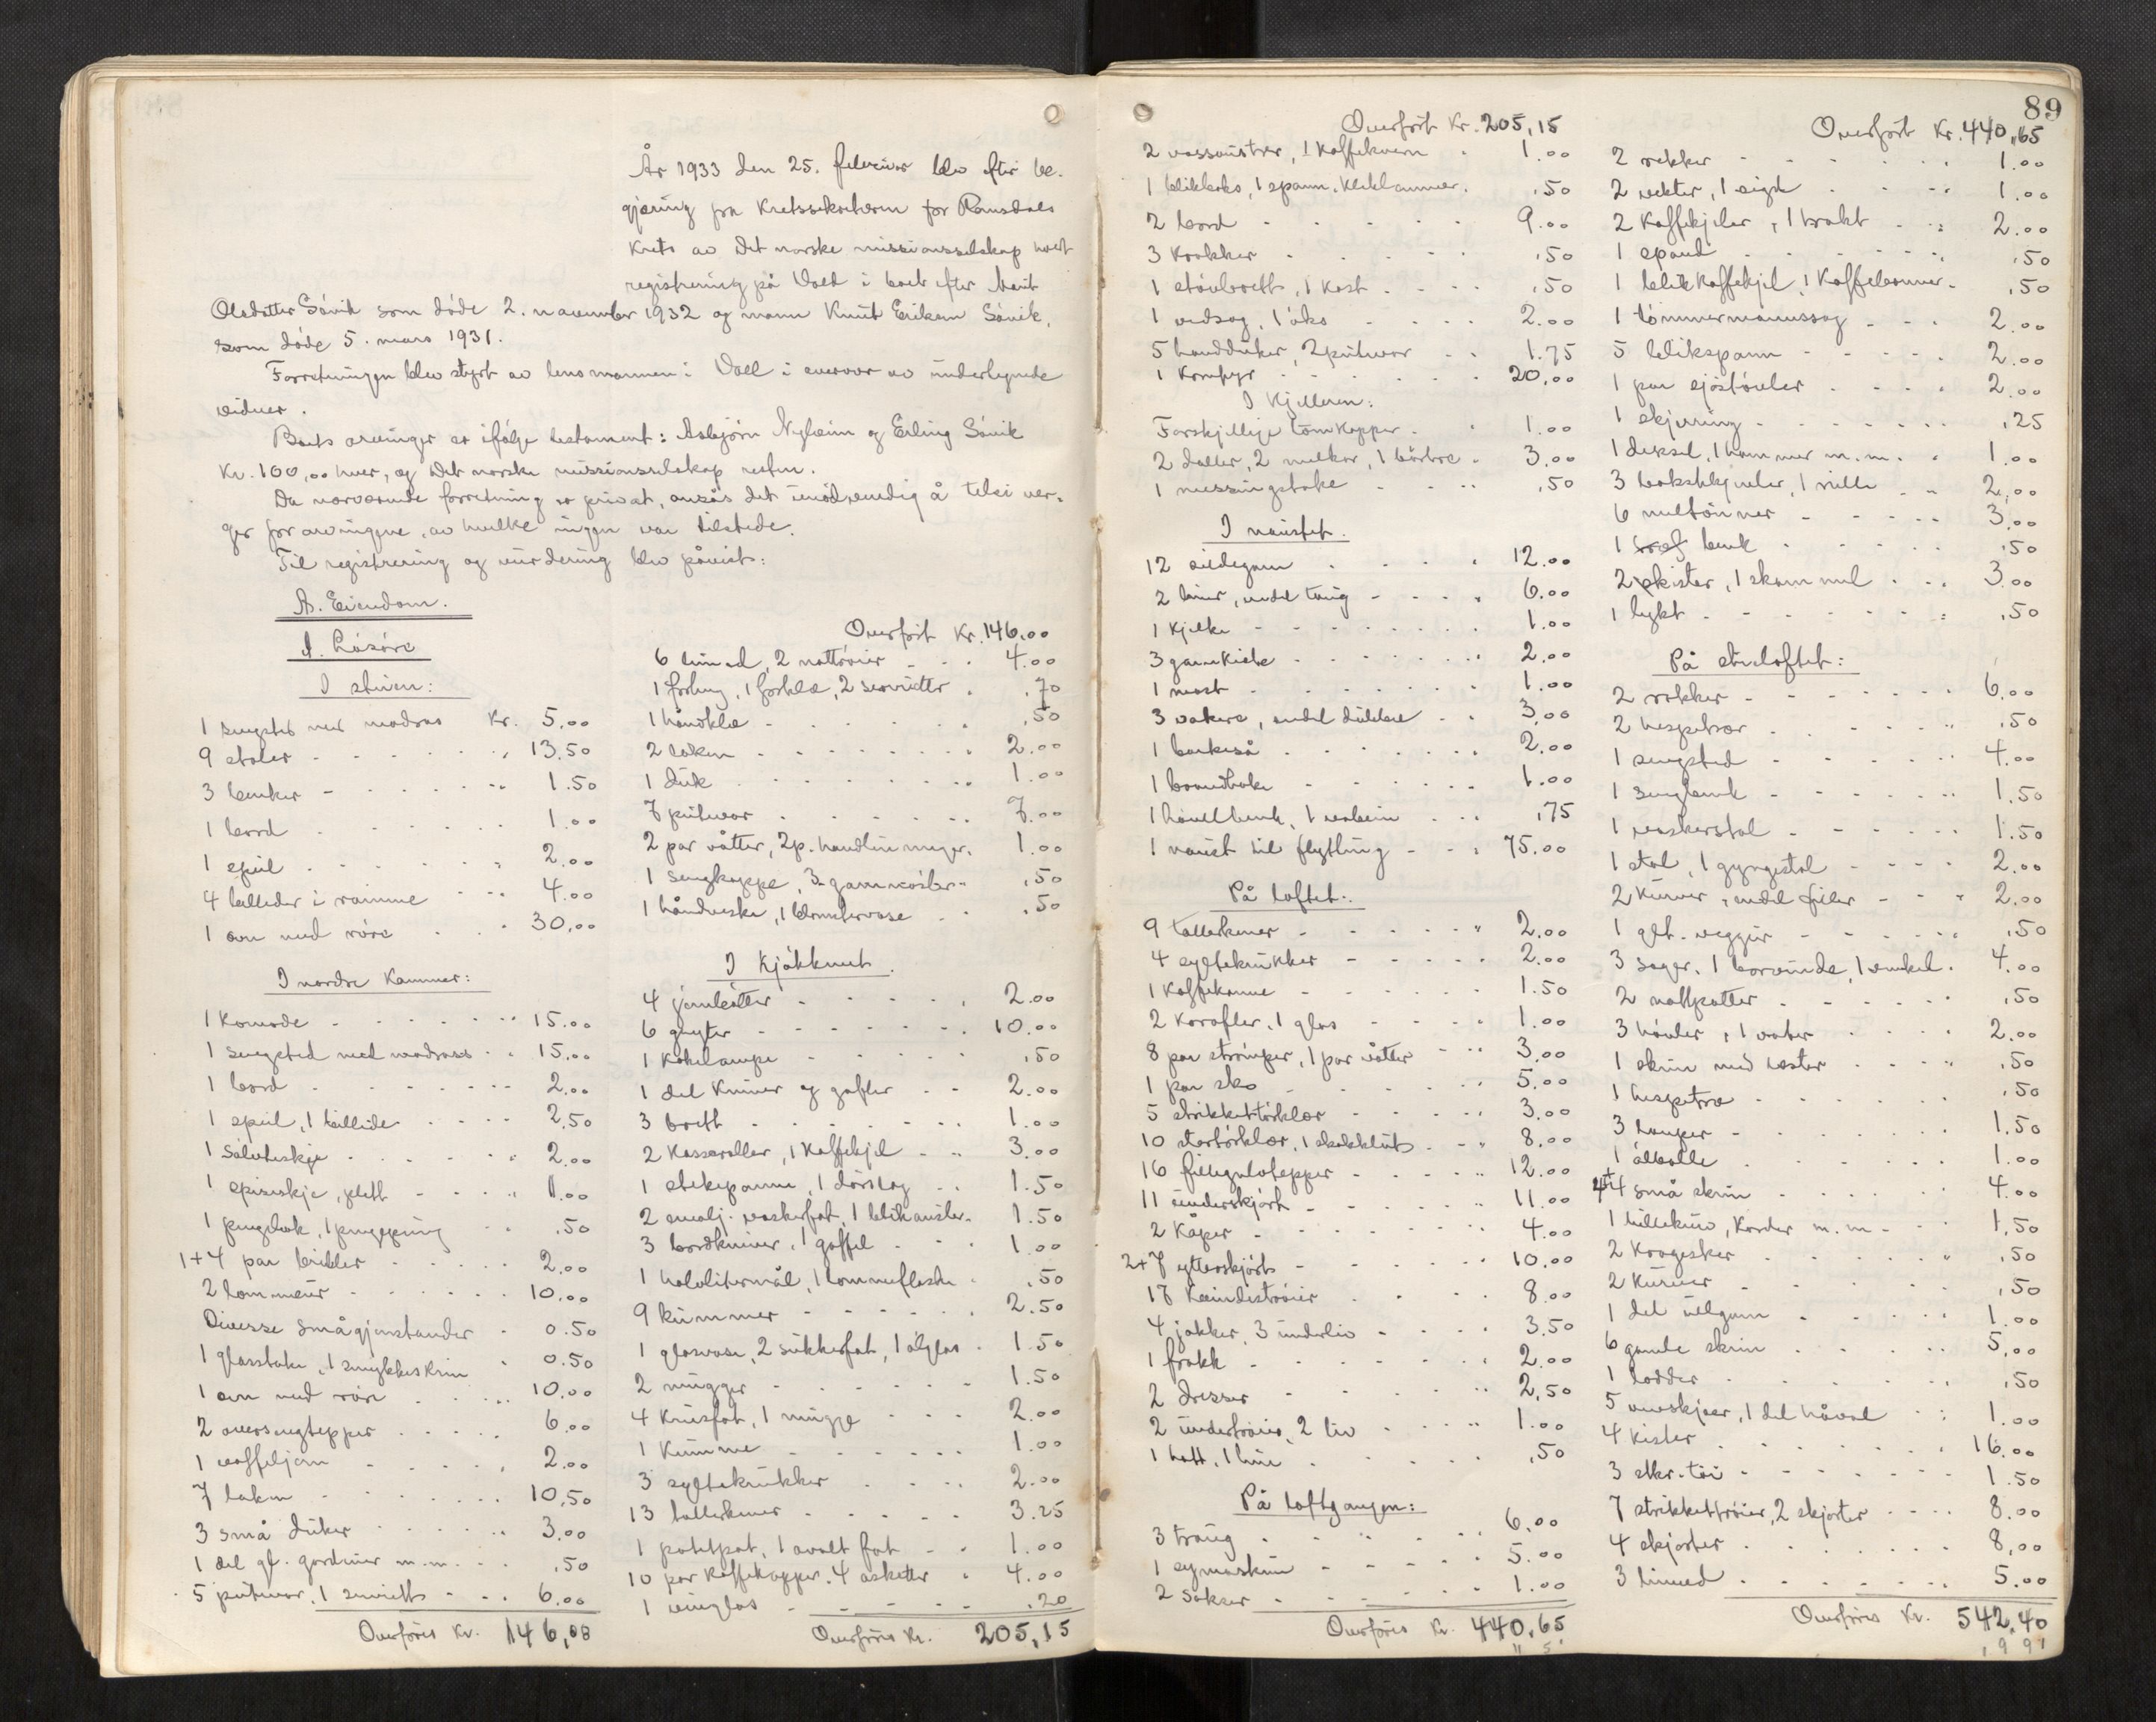 År 1933 den 25. februar blev efter be-
gjæring fra kretssekretæren for Romsdals
krets av Det norske missionsselskap holdt
registrering på Voll i boet efter Marit
Olsdatter Såvik som døde 2. november 1932 og mann Knut Eriksen Såvik,
som døde 5. mars 1931.
Forretningen blev styrt av lensmannen i Voll i overvær av underlegnede
vidner.
Boets arvinger er ifølge testament: Asbjørn Nyheim og Erling Såvik
kr. 100,00 hver, og Det norske missionsselskap resten.
Da nærværende forretning er privat, ansås det unødvendig å tilsi ver-
ger for arvingene, av hvilke ingen var tilstede.
Til registrering og vurdering blev påvist:
A. Eiendom.
I. Løsøre
I stuen:
1 sengsted med madras Kr. 5.00
9 stoler 13.50
3 benker 1.50
1 bord 1.00
1 speil 2.00
4 billeder i ramme 4.00
1 ovn med røre 30.00
I nordre kammer:
1 komode 15.00
1 sengsted med madrass 15.00
1 bord 2.00
1 speil, 1 billede 2.50
1 sølvteskje 2.00
1 spiseskje, plett 1.00
1 pengebok, 1 pengepung .50
1+4 par briller 2.00
2 lommeur 10.00
Diverse smågjenstander 0.50
1 glasstake, 1 smykkeskrin 0.50
1 ovn med røre 10.00
2 oversengtepper 6.00
1 vaffeljern 2.00
7 laken 10.50
3 små duker 3.00
1 del gl. gardiner m.m. .50
5 putevar, 1 serviett 6.00
Overføres Kr. 146,00
Overført Kr. 146.00
6 linned, 2 nattrøier 4.00
1 forheng, 1 forklæ, 2 servietter .70
1 håndklæ .50
2 laken 2.00
1 duk 1.00
7 putevar 7.00
2 par våtter, 2 p. handlinninger 1.00
1 sengkappe, 3 garnnøster .50
1 håndveske, 1 blomstervase .50
I kjøkkenet.
4 jerngrøtter 2.00
6 gryter 10.00
1 kokelampe .50
1 del kniver og gafler 2.00
3 brett 1.00
2 kasseroller, 1 kaffekjel 3.00
1 stekepanne, 1 dørslag 1.50
2 emalj. vaskefat, 1 blikausler 1.50
3 bordkniver, 1 gaffel 1.00
1 halvlitermål, 1 lommeflaske .50
9 kummer 2.50
1 glasvase, 2 sukkerfat, 1 ølglas 1.50
2 mugger 1.50
4 krusfat, 1 mugge 2.00
1 kumme 1.00
3 syltekrukker 2.00
13 tallerkener 3.25
1 potetfat, 1 avalt fat 1.00
10 par kaffekopper, 4 asketter 4.00
1 vinglas .20
Overføres Kr. 205,15
89
Overført Kr. 205,15
2 vassbøtter, 1 kaffekvern 1.00
1 blikboks, 1 spann, blikkanner .50
2 bord 9.00
3 krakker .50
1 støvbrett, 1 kost .50
1 vedsag, 1 øks 2.00
5 handduker, 2 putevar 1.75
1 komfyr 20.00
I kjelleren:
Forskjellige tomkopper 1.00
2 daller, 2 melkar, 1 børtre 3.00
1 messingstake .50
I naustet.
12 sildegarn 12.00
2 liner, endel taug 6.00
1 kjelke 1.00
3 garnkiste 2.00
1 mast 1.00
3 vakere, endel dubbel 3.00
1 barkeså 2.00
1 brandhake 1.00
1 høvelbenk, 1 .75
1 naust til flytting 75.00
På loftet:
9 tallerkener 2.00
4 syltekrukker 2.00
1 kaffekanne 1.50
2 karafler, 1 glas 1.00
8 par strømper, 1 par våtter 3.00
1 par sko 5.00
5 strikketørklær 3.00
10 stortørklær, 1 skoleklut 8.00
16 fillegulvtepper 12.00
11 underskjørt 11.00
2 kåper 4.00
2+7 ytterskjørt 10.00
17 kvindetrøier 8.00
4 jakker, 3 underliv 3.50
1 frakk 2.00
2 dresser 2.50
2 undertrøier, 2 liv 1.00
1 hatt, 1 lue .50
På loftgangen:
3 traug 6.00
1 symaskin 5.00
2 sakser 1.00
Overføres Kr. 440,65
Overført Kr. 440,65
2 rokker 1.00
2 vekter, 1 sigd 1.00
2 kaffekjeler, 1 trakt 2.00
1 spand .50
1 blikkaffekjel, 1 kaffebrenner .50
1 tømmermannssag 2.00
5 blikspann 2.00
1 par sjøstøvler 2.00
1 skjæring .25
1 deksel, 1 hammer m.m. 1.00
3 bakstekjevler, 1 rulle 2.00
6 meltønner 3.00
1 benk .50
2 kister, 1 skammel 3.00
1 lykt .50
På stueloftet:
2 rokker 6.00
2 hespetrær .50
1 sengsted 4.00
1 sengbenk 1.50
1 vaskerstol 1.50
1 stol, 1 gyngestol 2.00
2 kurver, endel filler 2.00
1 glt. veggur .50
3 sager, 1 borvinde, 1 vinkel 4.00
2 nattpotter .50
3 høvler, 1 vater 2.00
1 skrin med .50
1 hespetre .50
3 lamper 1.50
1 ølbolle 1.00
4 små skrin 4.00
1 tullekniv, karder m.m. 1.50
2 kragesker .50
2 kurver .50
1 del ullgarn 1.00
6 gamle skrin 5.00
1 lodder .50
5 ovnskjær, 1 del 1.00
4 kister 16.00
3 stkr. tøi 1.50
7 strikketrøier, 2 skjorter 8.00
4 skjorter 8.00
3 linned 5.00
Overføres Kr. 542,40